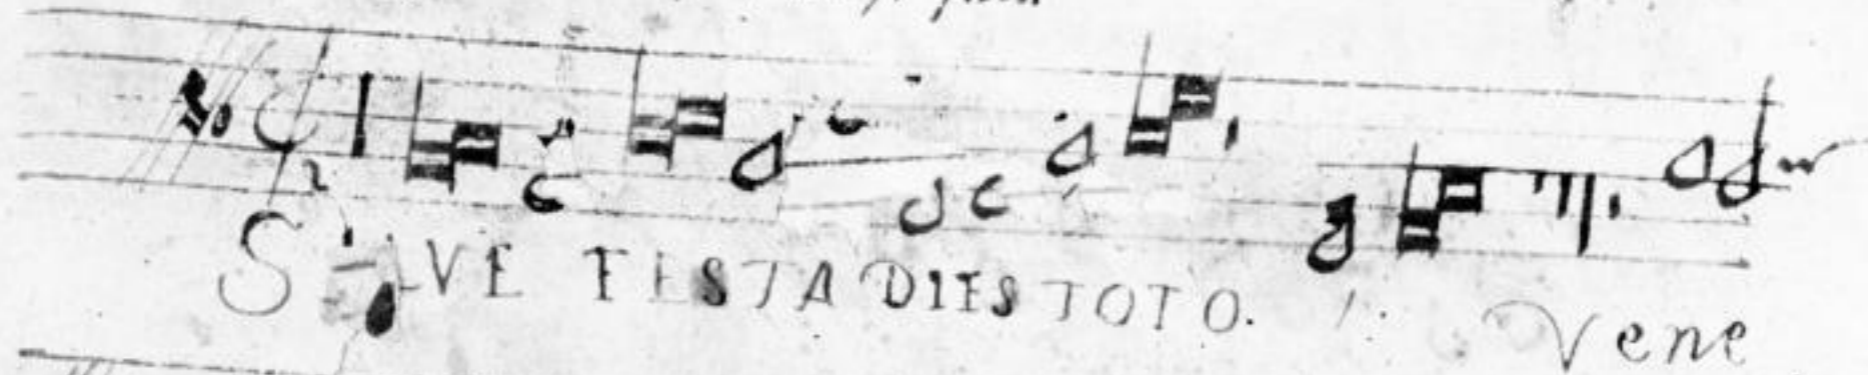 SALVE FESTA DIES TOTO. Vene